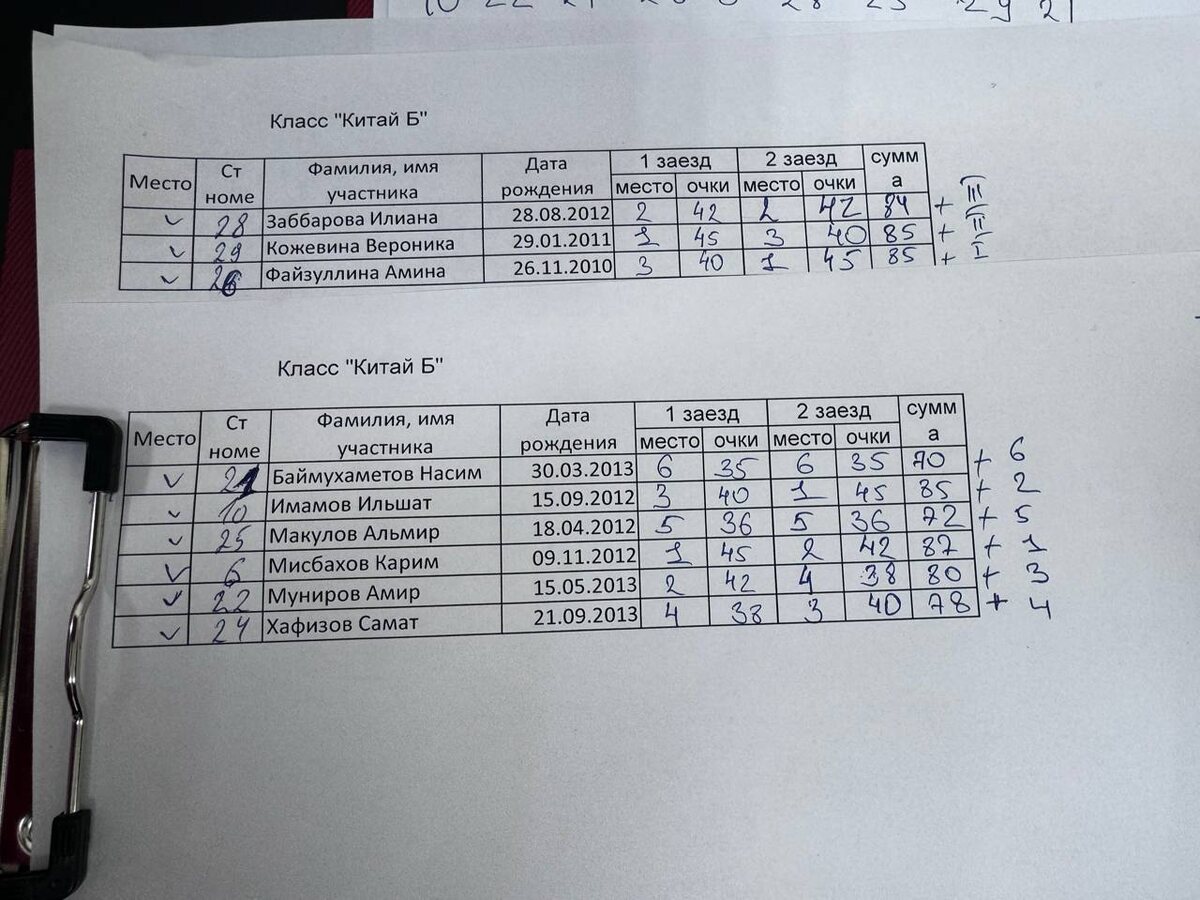 10 22 21
28 25 29 21
Класс "Китай Б"
Место Ст номе Фамилия, имя участника Дата рождения 1 заезд место очки 2 заезд место очки сумм а
✓ 28 Заббарова Илиана 28.08.2012 2 42 2 42 84 + III
✓ 29 Кожевина Вероника 29.01.2011 1 45 3 40 85 + II
✓ 26 Файзуллина Амина 26.11.2010 3 40 1 45 85 + I
Класс "Китай Б"
Место Ст номе Фамилия, имя участника Дата рождения 1 заезд место очки 2 заезд место очки сумм а
✓ 21 Баймухаметов Насим 30.03.2013 6 35 6 35 70 + 6
✓ 10 Имамов Ильшат 15.09.2012 3 40 1 45 85 + 2
✓ 25 Макулов Альмир 18.04.2012 5 36 5 36 72 + 5
✓ 6 Мисбахов Карим 09.11.2012 1 45 2 42 87 + 1
✓ 22 Муниров Амир 15.05.2013 2 42 4 38 80 + 3
✓ 24 Хафизов Самат 21.09.2013 4 38 3 40 78 + 4